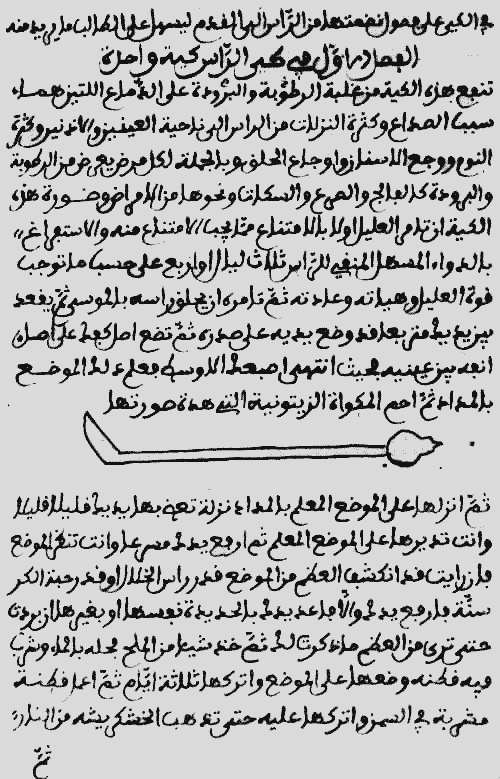 في الكي على فصول نضعتها من الرأس الى المقدم ليسهل على الطالب ما يريد منه
الفصل الاول في كي الرأس كية واحدة
تنفع هذه الكية من غلبة الرطوبة والبرودة على الدماغ اللتين هما
سببا الصداع وكثرة النزلات من الراس الى ناحية العينين والاذنين وكثرة
النوم ووجع الاسنان واوجاع الحلق وبالجملة لكل مرض يعرض من الرطوبة
والبرودة كالفالج والصرع والسكات ونحوها من الامراض وصورة هذه
الكية ان تامر العليل اولا بالامتناع مما يجب الامتناع منه والاستفراغ
بالدواء المسهل المنقي للراس ثلاث ليال او اربع على حسب ما توجب
قوة العليل وهيئاته وعادته ثم تامره ان يحلق راسه بالموسى ثم يقعد
بين يديك متربعا قد وضع يديه على صدره ثم تضع اصل كفك على اصل
انفه بين عينيه فحيث انتهى اصبعك الاوسط فعلم ذلك الموضع
بالمداد ثم احم المكواة الزيتونية التي هذه صورتها
ثم انزلها على الموضع المعلم بالمداد نزلة تعض بها يديك قليلا قليلا
وانت تديرها على الموضع المعلم ثم ارفع يدك مسرعا وانت تنظر الموضع
فان رايت قد انكشف العظم من الموضع قدر راس الخلال او قدر حبة الكر
سنة فارفع يدك والا فاعد يدك بالحديدة نفسها او بغيرها ان بردت
حتى ترى من العظم ما ذكرت لك ثم خذ شيئا من الملح فحله بالماء وشرب
فيه قطنه وضعها على الموضع واتركها ثلاثة ايام ثم اعد قطنة
مشربة في السمن واتركها عليه حتى تذهب الخشكريشه من النار
ثم